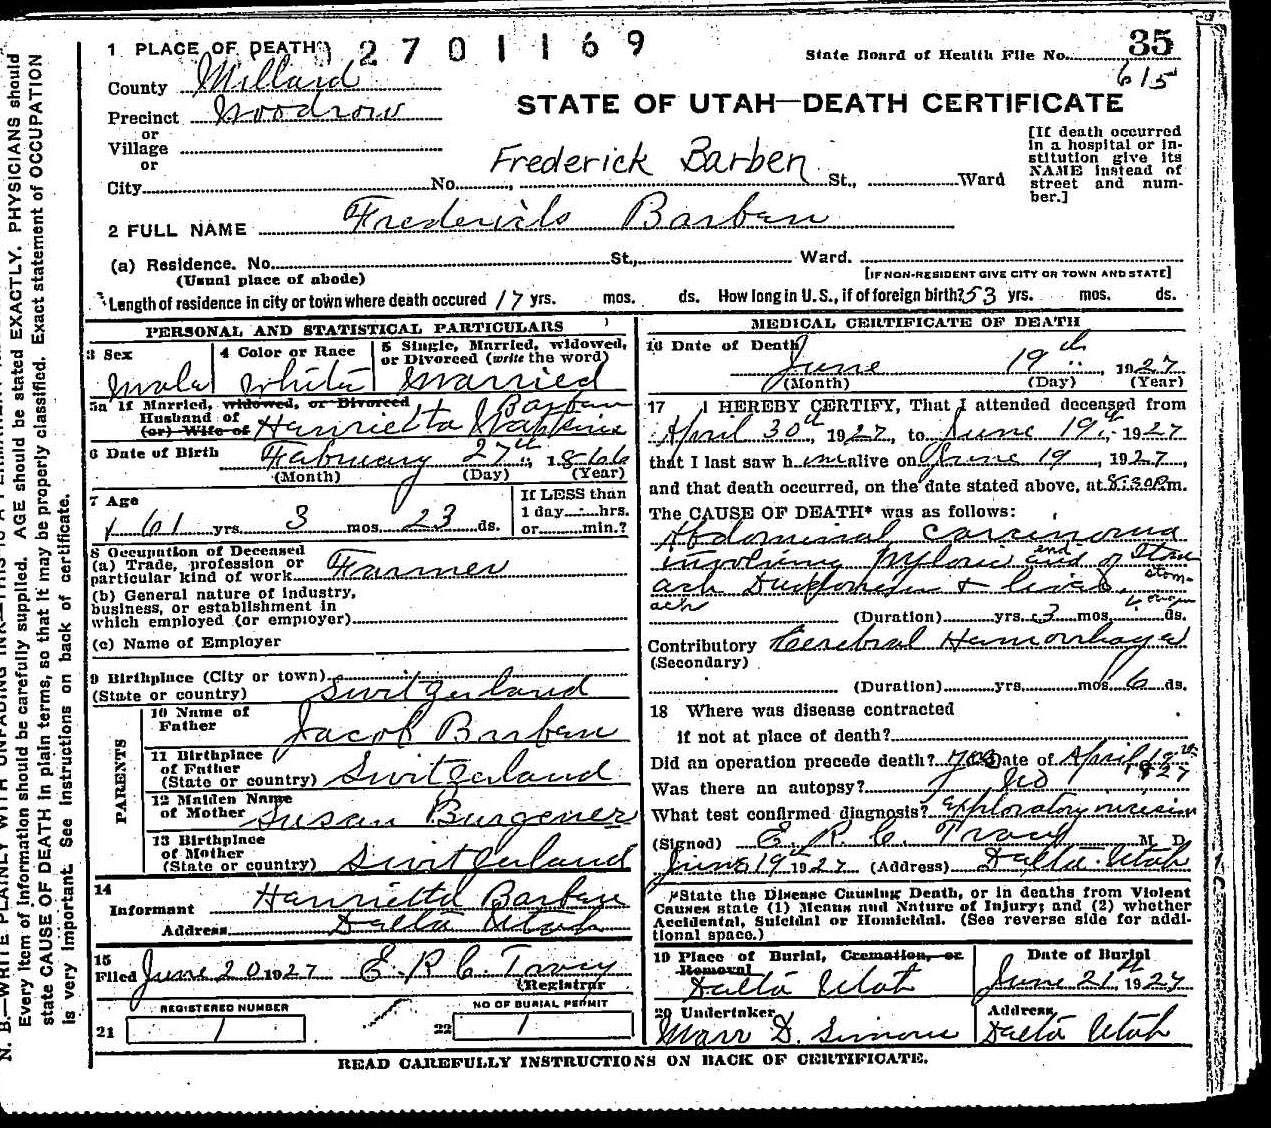 1 PLACE OF DEATH 2701169
State Board of Health File No. 35
615
County Millard
Precinct Woodrow
STATE OF UTAH—DEATH CERTIFICATE
or
Village
or
[If death occurred in a hospital or institution give its NAME instead of street and number.]
Frederick Barben
City No. St., Ward
2 FULL NAME Frederick Barben
(a) Residence. No. St., Ward.
(Usual place of abode) [IF NON-RESIDENT GIVE CITY OR TOWN AND STATE]
Length of residence in city or town where death occured 17 yrs. mos. ds. How long in U.S., if of foreign birth? 53 yrs. mos. ds.
PERSONAL AND STATISTICAL PARTICULARS
3 Sex
Male
4 Color or Race
White
5 Single, Married, widowed, or Divorced (write the word)
Married
5a If Married, widowed, or Divorced
Husband of
(or) Wife of Henrietta Barben
6 Date of Birth February 27th, 1866
(Month) (Day) (Year)
7 Age
61 yrs. 3 mos. 23 ds.
If LESS than
1 day hrs.
or min.?
8 Occupation of Deceased
(a) Trade, profession or
particular kind of work Farmer
(b) General nature of industry,
business, or establishment in
which employed (or employer)
(c) Name of Employer
9 Birthplace (City or town)
(State or country) Switzerland
PARENTS
10 Name of
Father Jacob Barben
11 Birthplace
of Father
(State or country) Switzerland
12 Maiden Name
of Mother Susan Burgener
13 Birthplace
of Mother
(State or country) Switzerland
14
Informant Henrietta Barben
Address Delta Utah
15
Filed June 20 1927 E. R. C. Tracy
(Registrar
REGISTERED NUMBER
21 1
NO OF BURIAL PERMIT
22 1
MEDICAL CERTIFICATE OF DEATH
16 Date of Death
June 19th 1927
(Month) (Day) (Year)
17 I HEREBY CERTIFY, That I attended deceased from
April 30th, 1927, to June 19th, 1927
that I last saw him alive on June 19, 1927,
and that death occurred, on the date stated above, at 8:30 P.m.
The CAUSE OF DEATH* was as follows:
Abdominal carcinoma
involving pyloric end of Stom
ach Duodenum & liver.
(Duration) yrs. 3 mos. ds.
Contributory Cerebral Hemorrhage
(Secondary)
(Duration) yrs. mos. 6 ds.
18 Where was disease contracted
if not at place of death?
Did an operation precede death? yes Date of April 1927
Was there an autopsy? No
What test confirmed diagnosis? Exploratory incision
(Signed) E. R. C. Tracy M. D.
June 19th 1927 (Address) Delta Utah
*State the Disease Causing Death, or in deaths from Violent
Causes state (1) Means and Nature of Injury; and (2) whether
Accidental, Suicidal or Homicidal. (See reverse side for addi-
tional space.)
19 Place of Burial, Cremation, or
Removal
Delta Utah
Date of Burial
June 21th 1927
20 Undertaker
Marr D. Simons
Address
Delta Utah
READ CAREFULLY INSTRUCTIONS ON BACK OF CERTIFICATE.
Every item of information should be carefully supplied. AGE should be stated EXACTLY. PHYSICIANS should
state CAUSE OF DEATH in plain terms, so that it may be properly classified. Exact statement of OCCUPATION
is very important. See instructions on back of certificate.